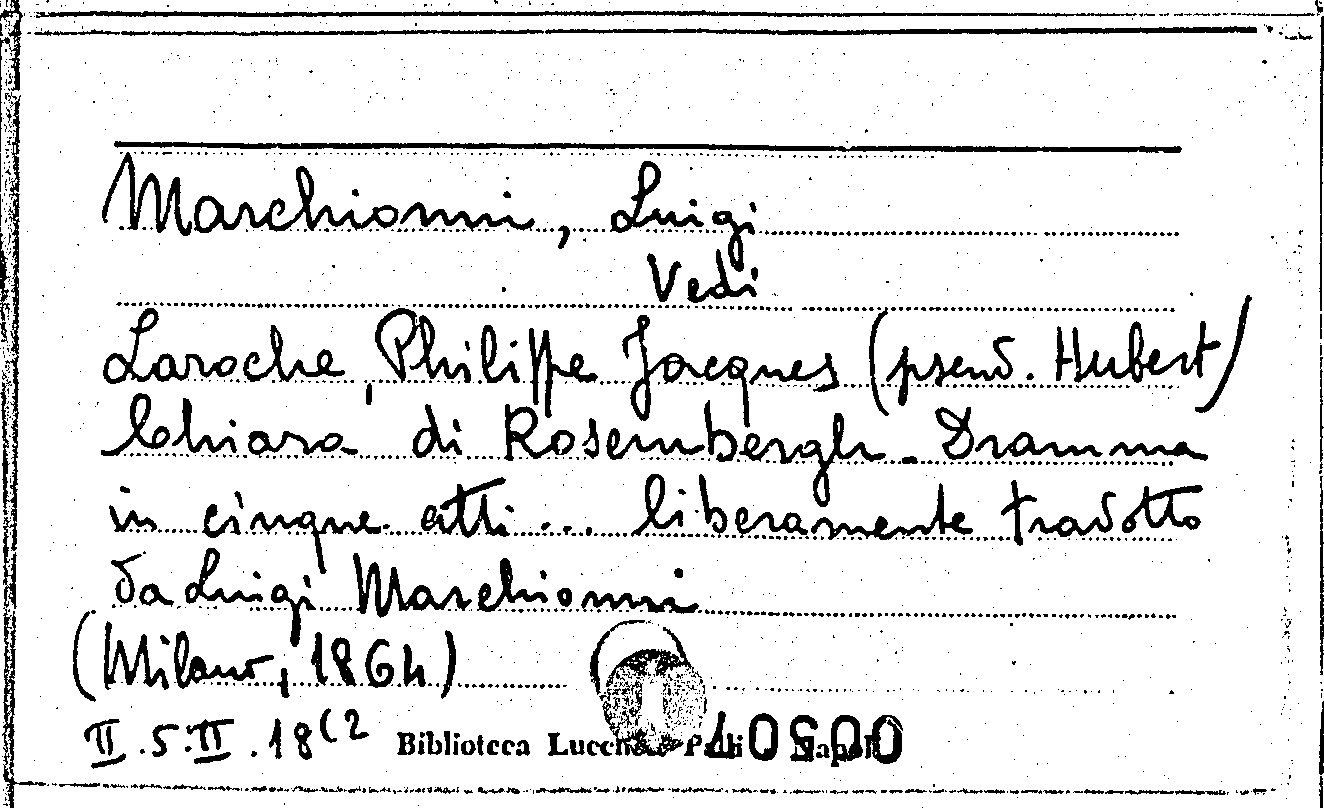 Marchionni, Luigi
Vedi
Laroche, Philippe Jacques (pseud. Hubert)
Chiara di Rosembergh - Dramma
in cinque atti ... liberamente tradotto
da Luigi Marchionni
(Milano, 1864)
II.5.II.18(2
Biblioteca Lucchesi Palli Napoli